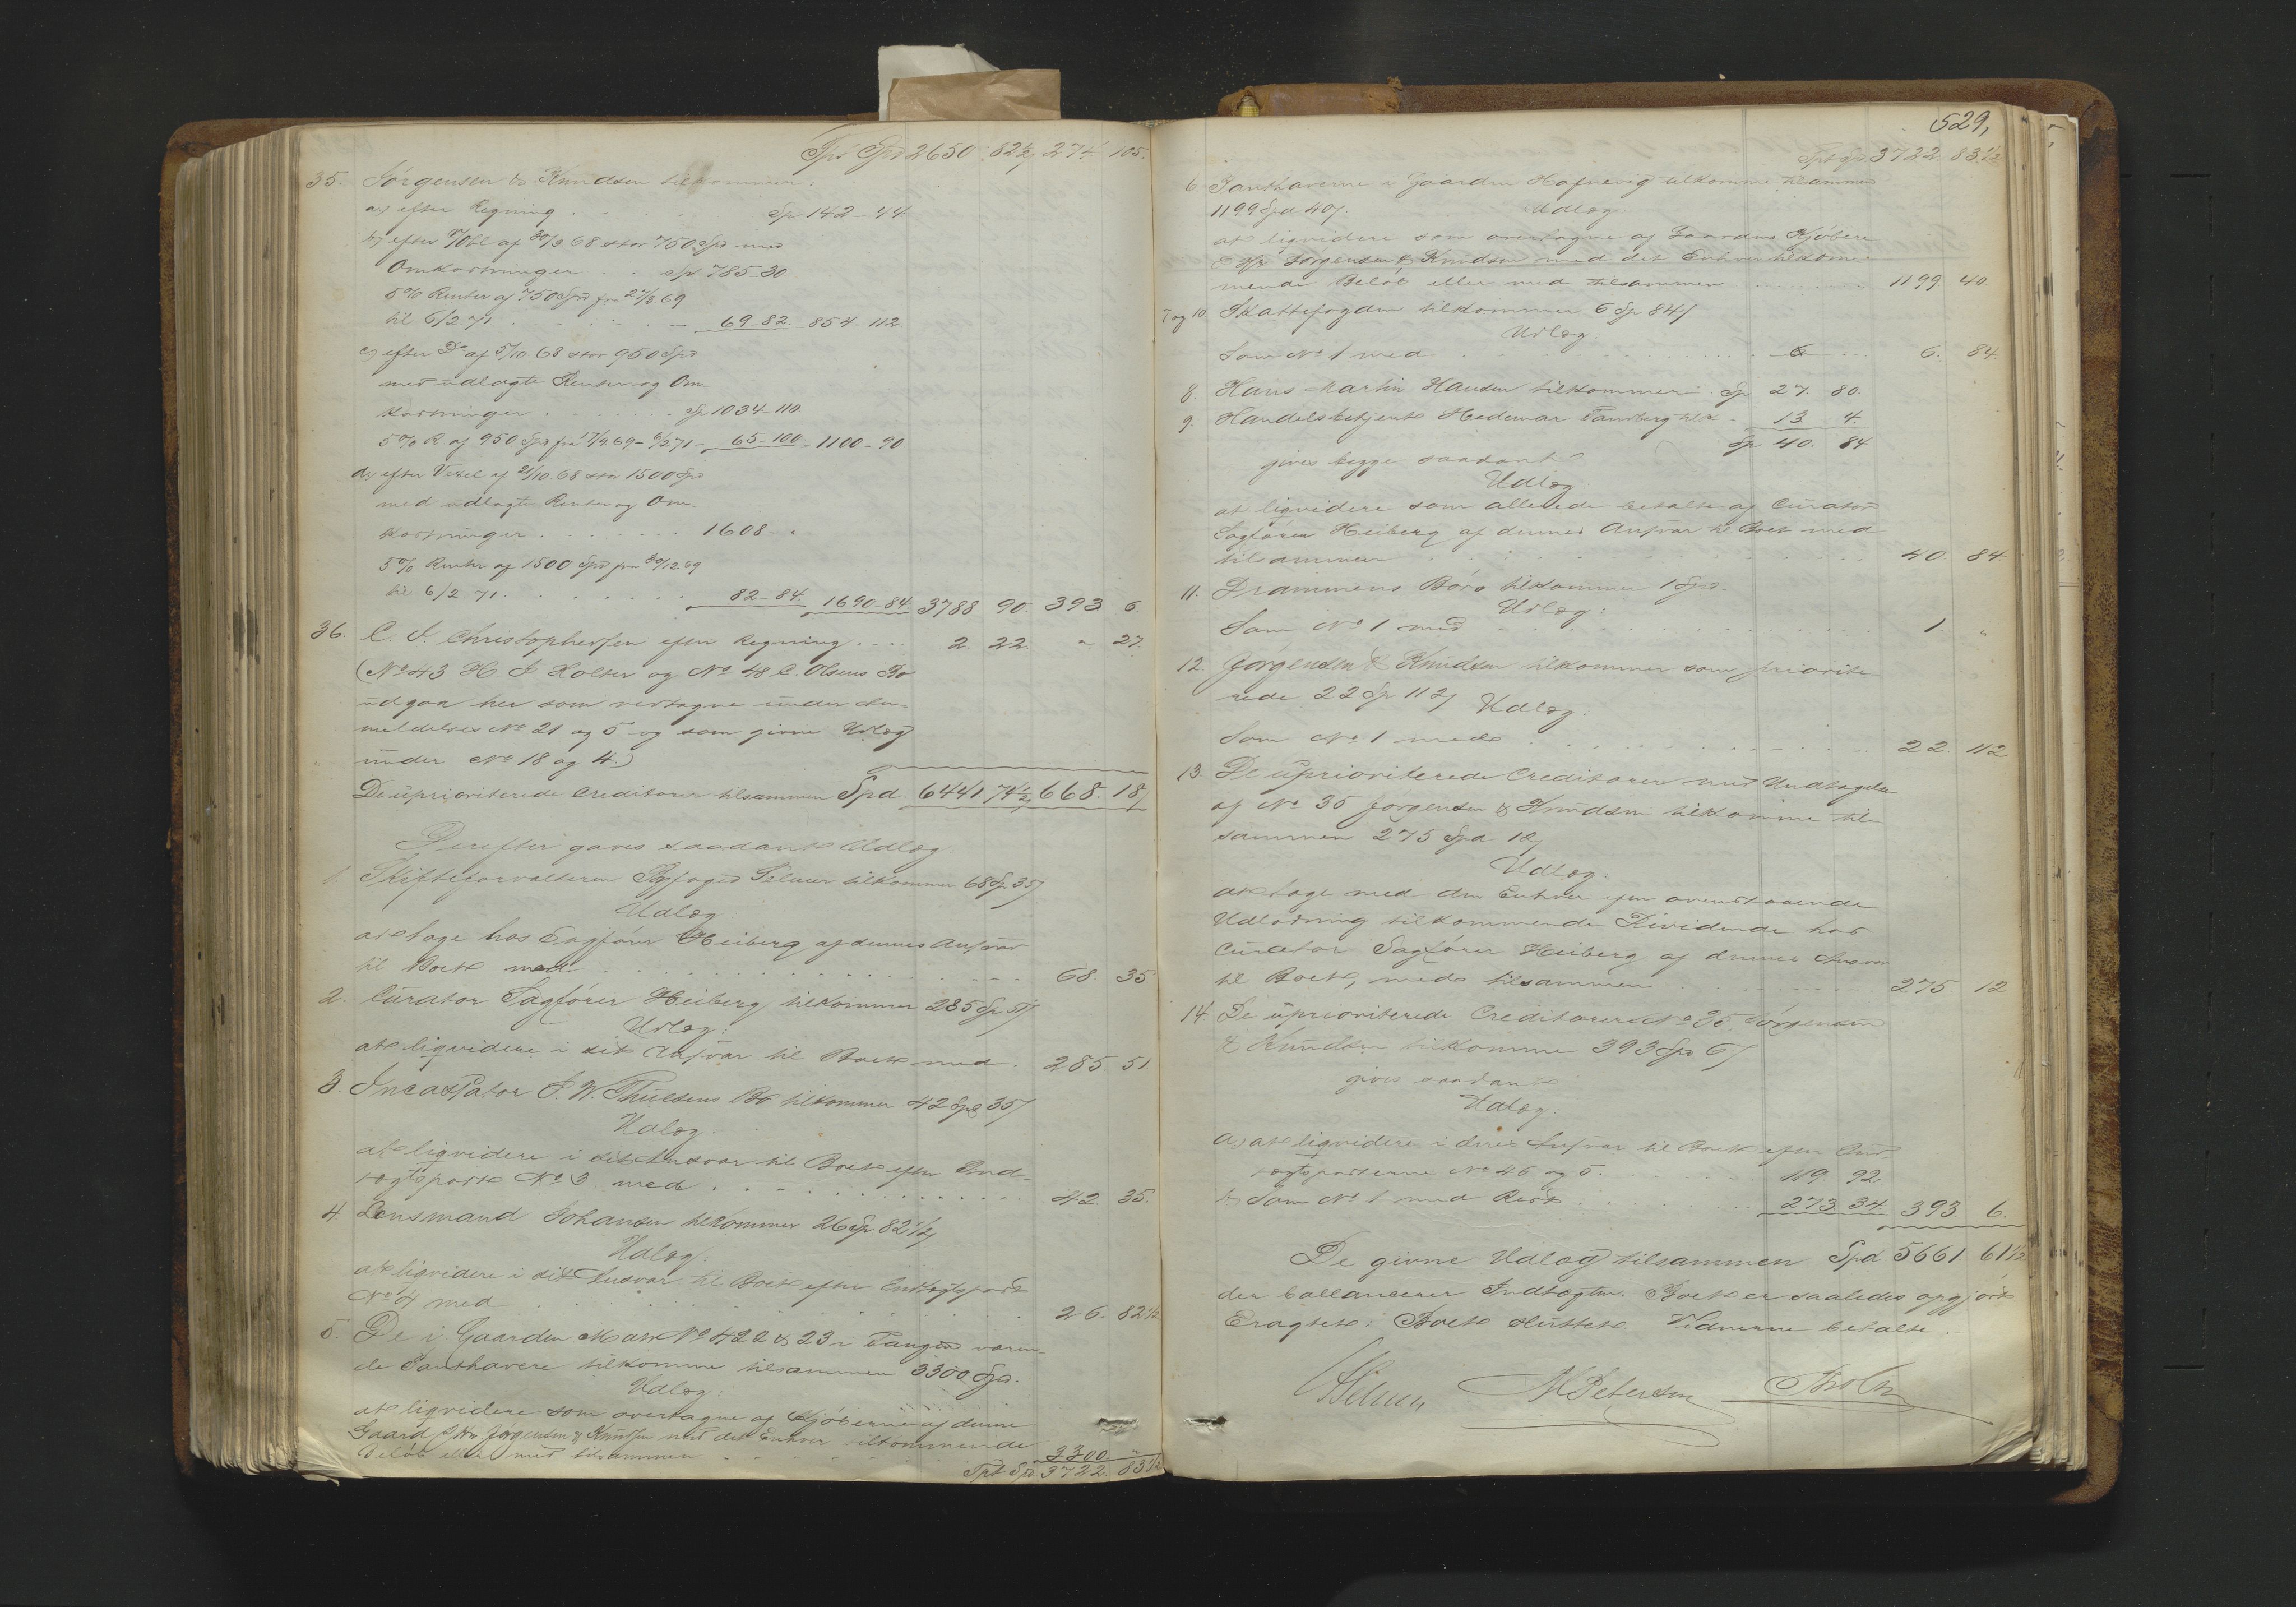 Tpt Spd 2650 82½ 274 105.
35. Jörgensen & Knudsen tilkommer:
a, efter Regning . . . Sp 142-44
b, efter Obl af 30/3 68 stor 750 Spd med
Omkostninger . . Sp 785-30
5% Renter af 750 Spd fra 27/3 69
til 6/2 71 . . . - 69-82 - 854-112
c, efter Do af 5/10 68 stor 950 Spd
med udlagte Renter og Om-
kostninger . . . . Sp 1034-110
5% R. af 950 Spd fra 17/9 69 - 6/2 71 - 65-100 - 1100-90
d, efter Vexel af 21/10 68 stor 1500 Spd
med udlagte Renter og Om-
kostninger . . . . 1608 - "
5% Renter af 1500 Spd fra 30/12 69
til 6/2 71 . . . . 82-84. 1690-84 3788 90. 393 6
36. C. J. Christophersen efter Regning . . . . 2. 22. " 27.
(No 43 H. J. Holter og No 48 C. Olsens Bo
udgaa her som vedtagne under An-
meldelser No 21 og 5 og som givne Udlæg
under No 18 og 4.)
De uprioriterede Creditorer tilsammen Spd. 6441 74½ 668. 18/
Derefter gaves saadant Udlæg
1. Skifteforvalteren Byfoged Selmer tilkommer 68 Sp 35/
Udlæg
at tage hos Sagfører Heiberg af dennes Ansvar
til Boet med . . . . 68. 35
2. Curator Sagfører Heiberg tilkommer 285 Sp 51/
Udlæg:
at liqvidere i sit Ansvar til Boet med . 285. 51
3. Incassator J. W. Thuesens Bo tilkommer 42 Spd 35/
Udlæg:
at liqvidere i sit Ansvar til Boet efter Ind-
tægtspost No 3 med . . . . 42 35.
4. Lensmand Johansen tilkommer 26 Sp 82½/
Udlæg:
at liqvidere i sit Ansvar til Boet efter Indtægtspost
No 4 med . . . . 26. 82½
5. De i Gaarden Matr No 422 & 23 i Tangen væren-
de Panthavere tilkomme tilsammen 3300 Spd.
Udlæg:
at liqvidere som overtagne af Kjøberne af denne
Gaard Jörgensen & Knudsen med det Enhver tilkommende
Beløb eller med tilsammen . . . 3300 "
Tpt Spd 3722. 83½
529,
Tpt Sp 3722 83½
6. Panthaverne i Gaarden Hafnevig tilkomme tilsammen
1199 Spd 40/. Udlæg:
at liqvidere som overtagne af Gaardens Kjøbere
Jörgensen & Knudsen med det Enhver tilkom-
mende Beløb eller med tilsammen . . . 1199 40.
7 og 10 Skattefogden tilkommer 6 Sp 84/
Udlæg:
Som No 1 med . . . . 6. 84.
8. Hans Martin Hansen tilkommer . Sp 27. 80.
9. Handelsbetjent Hedemar Tamberg tilk. - 13 4.
Sp 40. 84
gives begge saadant
Udlæg:
at liqvidere som allerede betalte af Curator
Sagfører Heiberg af dennes Ansvar til Boet med
tilsammen . . . . 40. 84.
11. Drammens Børs tilkommer 1 Spd.
Udlæg:
Som No 1 med . . . . 1. "
12. Jörgensen & Knudsen tilkommer som priorite-
rede 22 Sp 112/ Udlæg:
Som No 1 med . . . . 22. 112
13. De uprioriterede Creditorer med Undtagelse
af No 35 Jörgensen & Knudsen tilkomme til-
sammen 275 Spd 12/
Udlæg:
at tage med den Enhver efter ovenstaaende
Udlodning tilkommende Dividende hos
Curator Sagfører Heiberg af dennes Ansvar
til Boet, med tilsammen . . . 275. 12
14. De uprioriterede Creditorer No 35 Jörgensen
& Knudsen tilkomme 393 Spd 6/
gives saadant
Udlæg:
a, at liqvidere i deres Ansvar til Boet efter Ind-
tægtsposterne No 46 og 5. . . . 119. 92
b, Som No 1 med Rest . . . 273. 34. 393 6.
De givne Udlæg tilsammen Spd 5661. 61½
der ballancerer Indtægten. Boet er saaledes opgjort
Eragtet: Boet sluttet. Vidnerne betalte.
Selmer, M Petersen